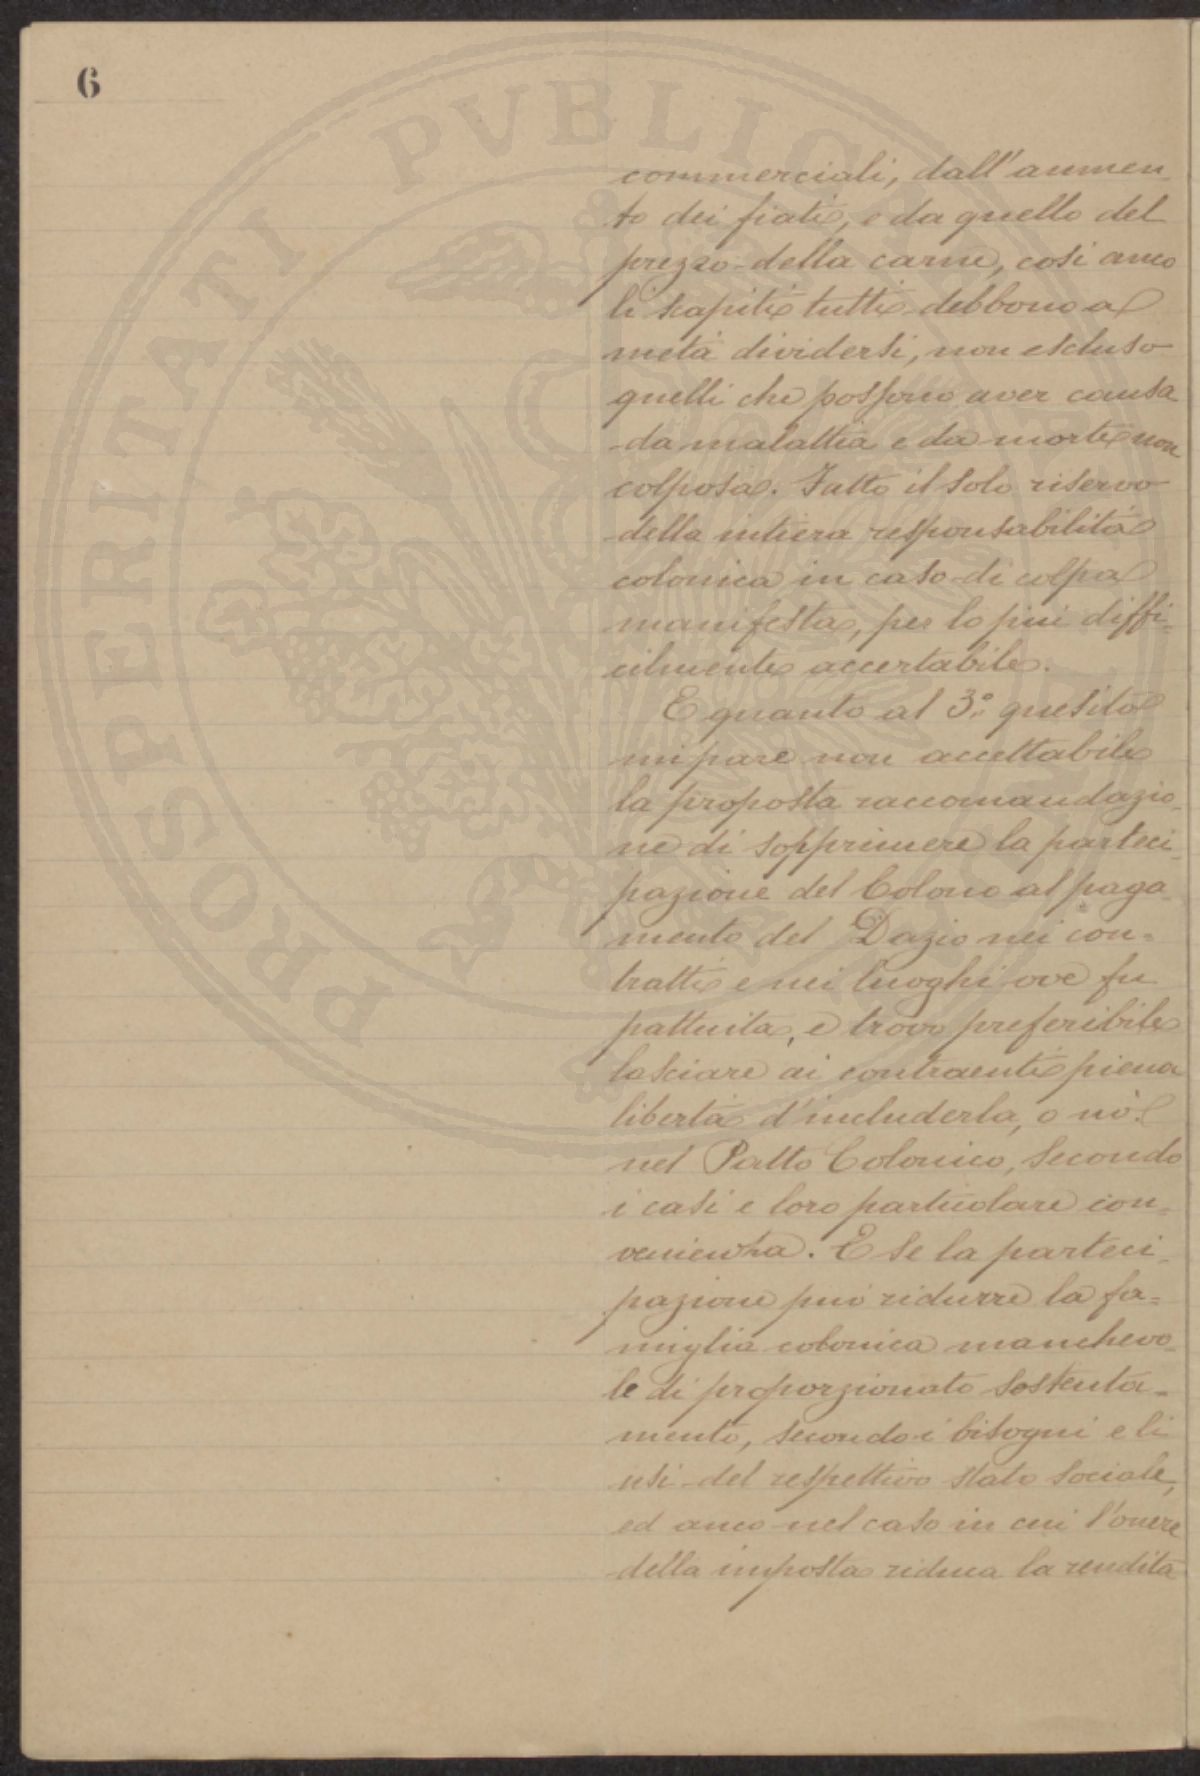 6
PROSPERITATI PVBLICAE
commerciali, dall'aumen
to dei fiati, e da quello del
prezzo della carne, così anco
li scapiti tutti debbono a
metà dividersi, non escluso
quelli che possono aver causa
da malattia e da morte non
colposa. Fatto il solo riservo
della intiera responsabilità
colonica in caso di colpa
manifesta, per lo più diffi=
cilmente accertabile.
E quanto al 3.º quesito
mi pare non accettabile
la proposta raccomandazio=
ne di sopprimere la parteci=
pazione del Colono al paga
mento del Dazio nei con=
tratti e nei luoghi ove fu
pattuita, e trovo preferibile
lasciare ai contraenti piena
libertà d'includerla, o nò
nel Patto Colonico, secondo
i casi e loro particolare con=
venienza. E se la parteci=
pazione può ridurre la fa=
miglia colonica manchevo=
le di proporzionato sostenta=
mento, secondo i bisogni e li
usi del respettivo stato sociale,
ed anco nel caso in cui l'onere
della imposta riduca la rendita